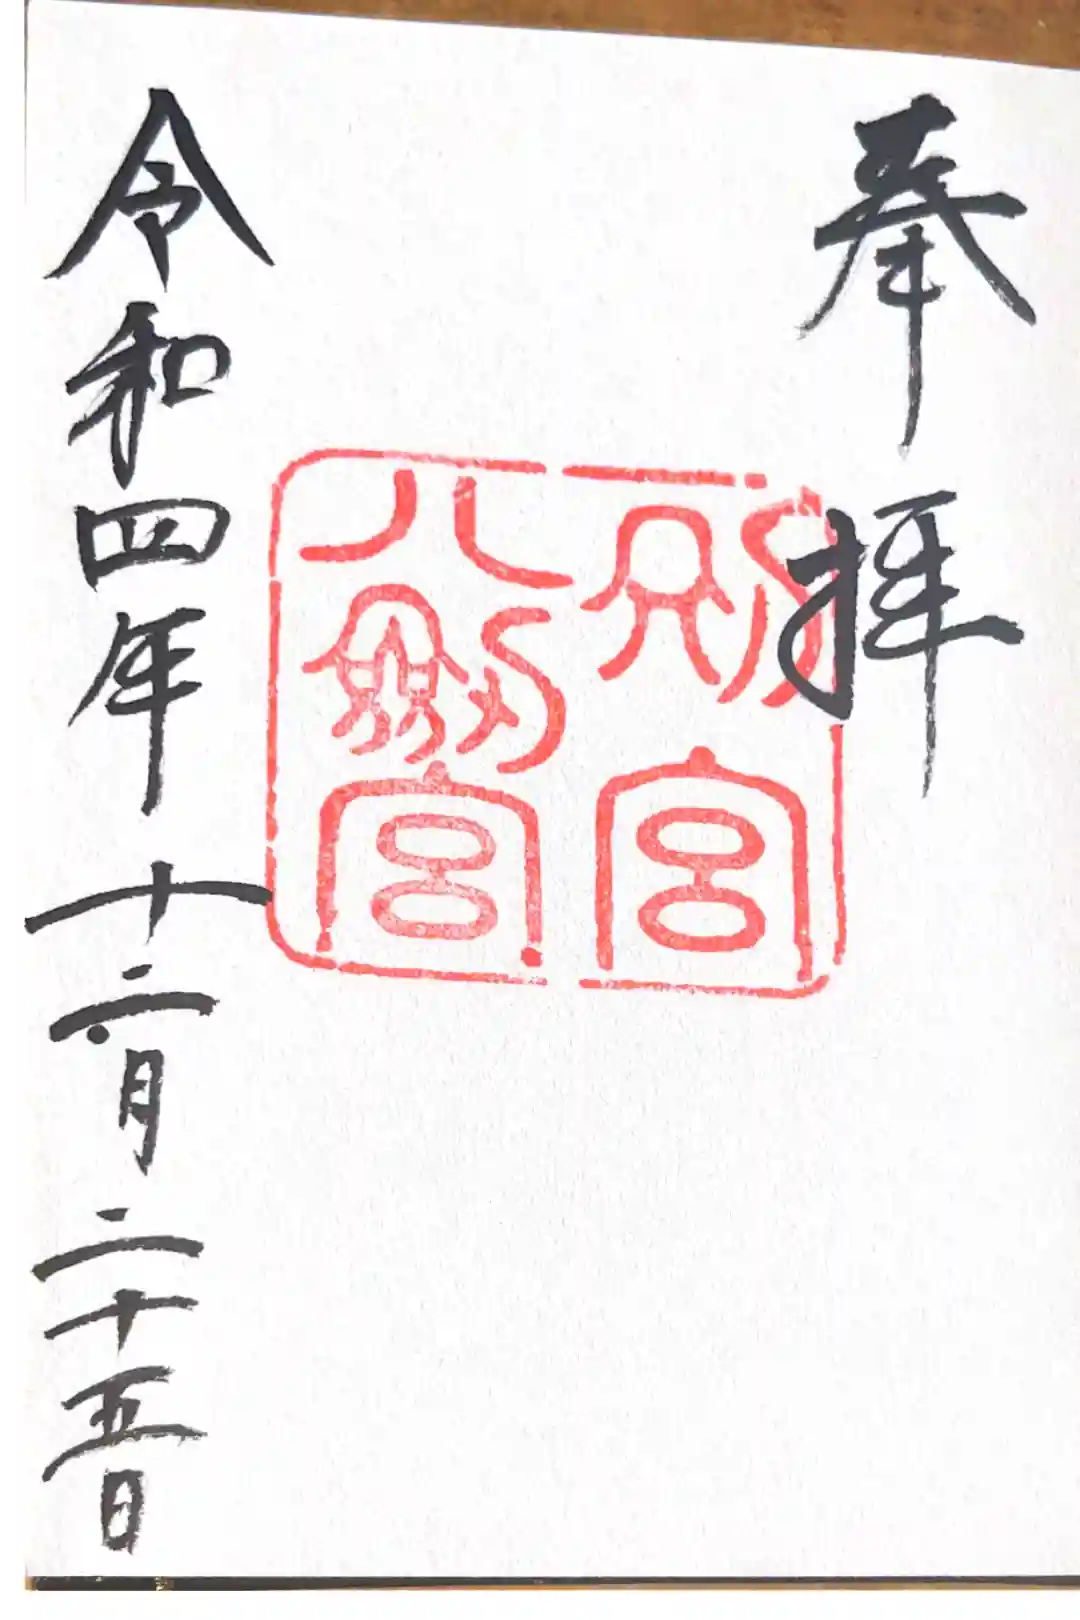 奉拝
別宮
八劔宮
令和四年十二月二十五日